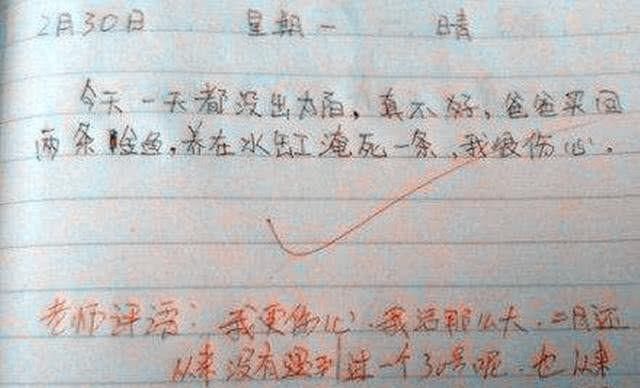 2月30日 星期一 晴
今天一天都没出太阳,真不好,爸爸买回
两条金鱼,养在水缸淹死一条,我很伤心。
老师评语:我更伤心,我活那么大,二月还
从来没有遇到过一个30号呢,也从来